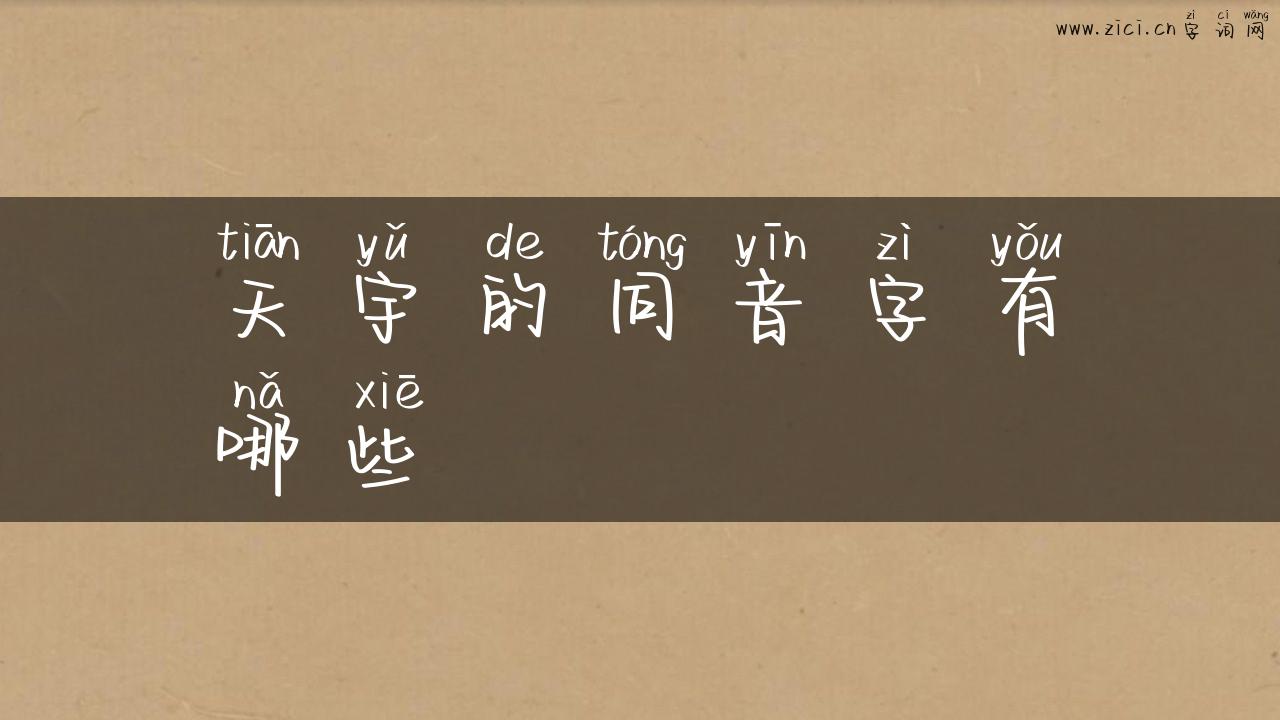 zì cí wǎng
www.zici.cn 字 词 网
tiān yǔ de tóng yīn zì yǒu
天 宇 的 同 音 字 有
nǎ xiē
哪 些